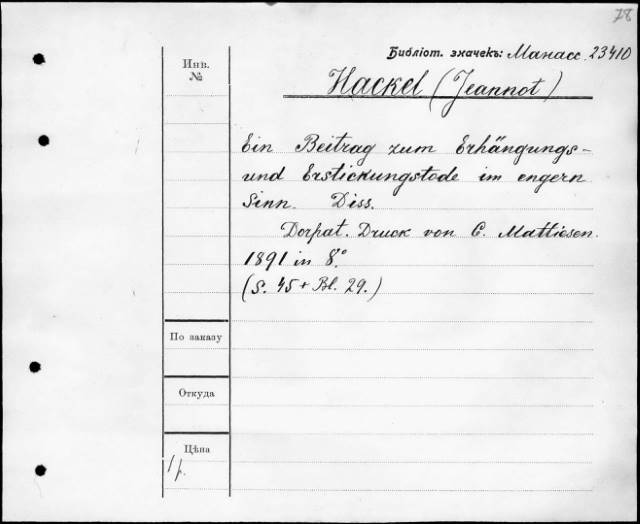 78
Библіот. значекъ: Манасс. 23410
Инв.
№
Hackel (Jeannot)
Ein Beitrag zum Erhängungs-
und Erstickungstode im engern
Sinn. Diss.
Dorpat. Druck von C. Mattiesen.
1891 in 8°.
(S. 45 + Bl. 29.)
По заказу
Откуда
Цѣна
1 р.